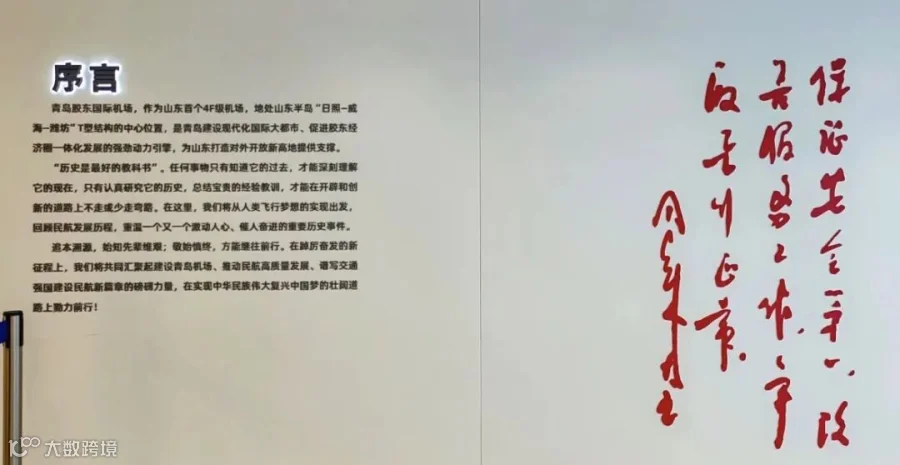 序言
青岛胶东国际机场，作为山东首个4F级机场，地处山东半岛“日照-威
海-潍坊”T型结构的中心位置，是青岛建设现代化国际大都市、促进胶东经
济圈一体化发展的强劲动力引擎，为山东打造对外开放新高地提供支撑。
“历史是最好的教科书”。任何事物只有知道它的过去，才能深刻理解
它的现在，只有认真研究它的历史，总结宝贵的经验教训，才能在开辟和创
新的道路上不走或少走弯路。在这里，我们将从人类飞行梦想的实现出发，
回顾民航发展历程，重温一个又一个激动人心、催人奋进的重要历史事件。
追本溯源，始知先辈维艰；敬始慎终，方能继往前行。在踔厉奋发的新
征程上，我们将共同汇聚起建设青岛机场、推动民航高质量发展、谱写交通
强国建设民航新篇章的磅礴力量，在实现中华民族伟大复兴中国梦的壮阔道
路上勠力前行！
保证安全第一，改
善服务工作，争
取飞行正常。
周恩来
大数跨境